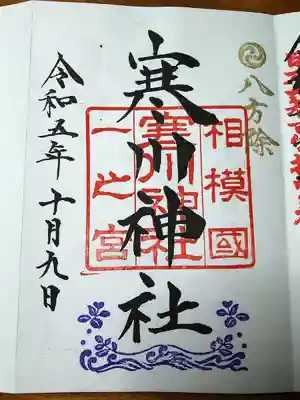 八方除
寒川神社
相模國
寒川神社
一之宮
令和五年十月九日